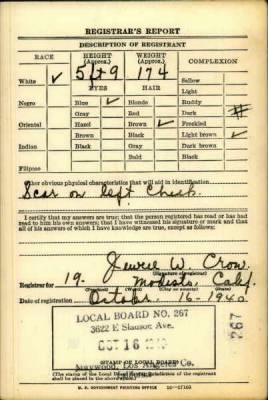 REGISTRAR'S REPORT
DESCRIPTION OF REGISTRANT
RACE HEIGHT (Approx.) WEIGHT (Approx.) COMPLEXION
White ✓ 5 ft 9 174 Sallow
EYES HAIR Light
Negro Blue ✓ Blonde Ruddy
Gray Red Dark #
Oriental Hazel Brown ✓ Freckled
Brown Black Light brown ✓
Indian Black Gray Dark brown
Bald Black
Filipino
Other obvious physical characteristics that will aid in identification
Scar on left Cheek.
I certify that my answers are true; that the person registered has read or has had read to him his own answers; that I have witnessed his signature or mark and that all of his answers of which I have knowledge are true, except as follows:
Jewell W. Crow
(Signature of registrar)
Registrar for 19- Modesto, Calif.
(Precinct) (Ward) (City or county) (State)
Date of registration October 16-1940
LOCAL BOARD NO. 267
3622 E Slauson Ave.
OCT 16 1940
Maywood, Los Angeles Co.
267
(STAMP OF LOCAL BOARD)
(The stamp of the Local Board having jurisdiction of the registrant shall be placed in the above space.)
U. S. GOVERNMENT PRINTING OFFICE 16-17105